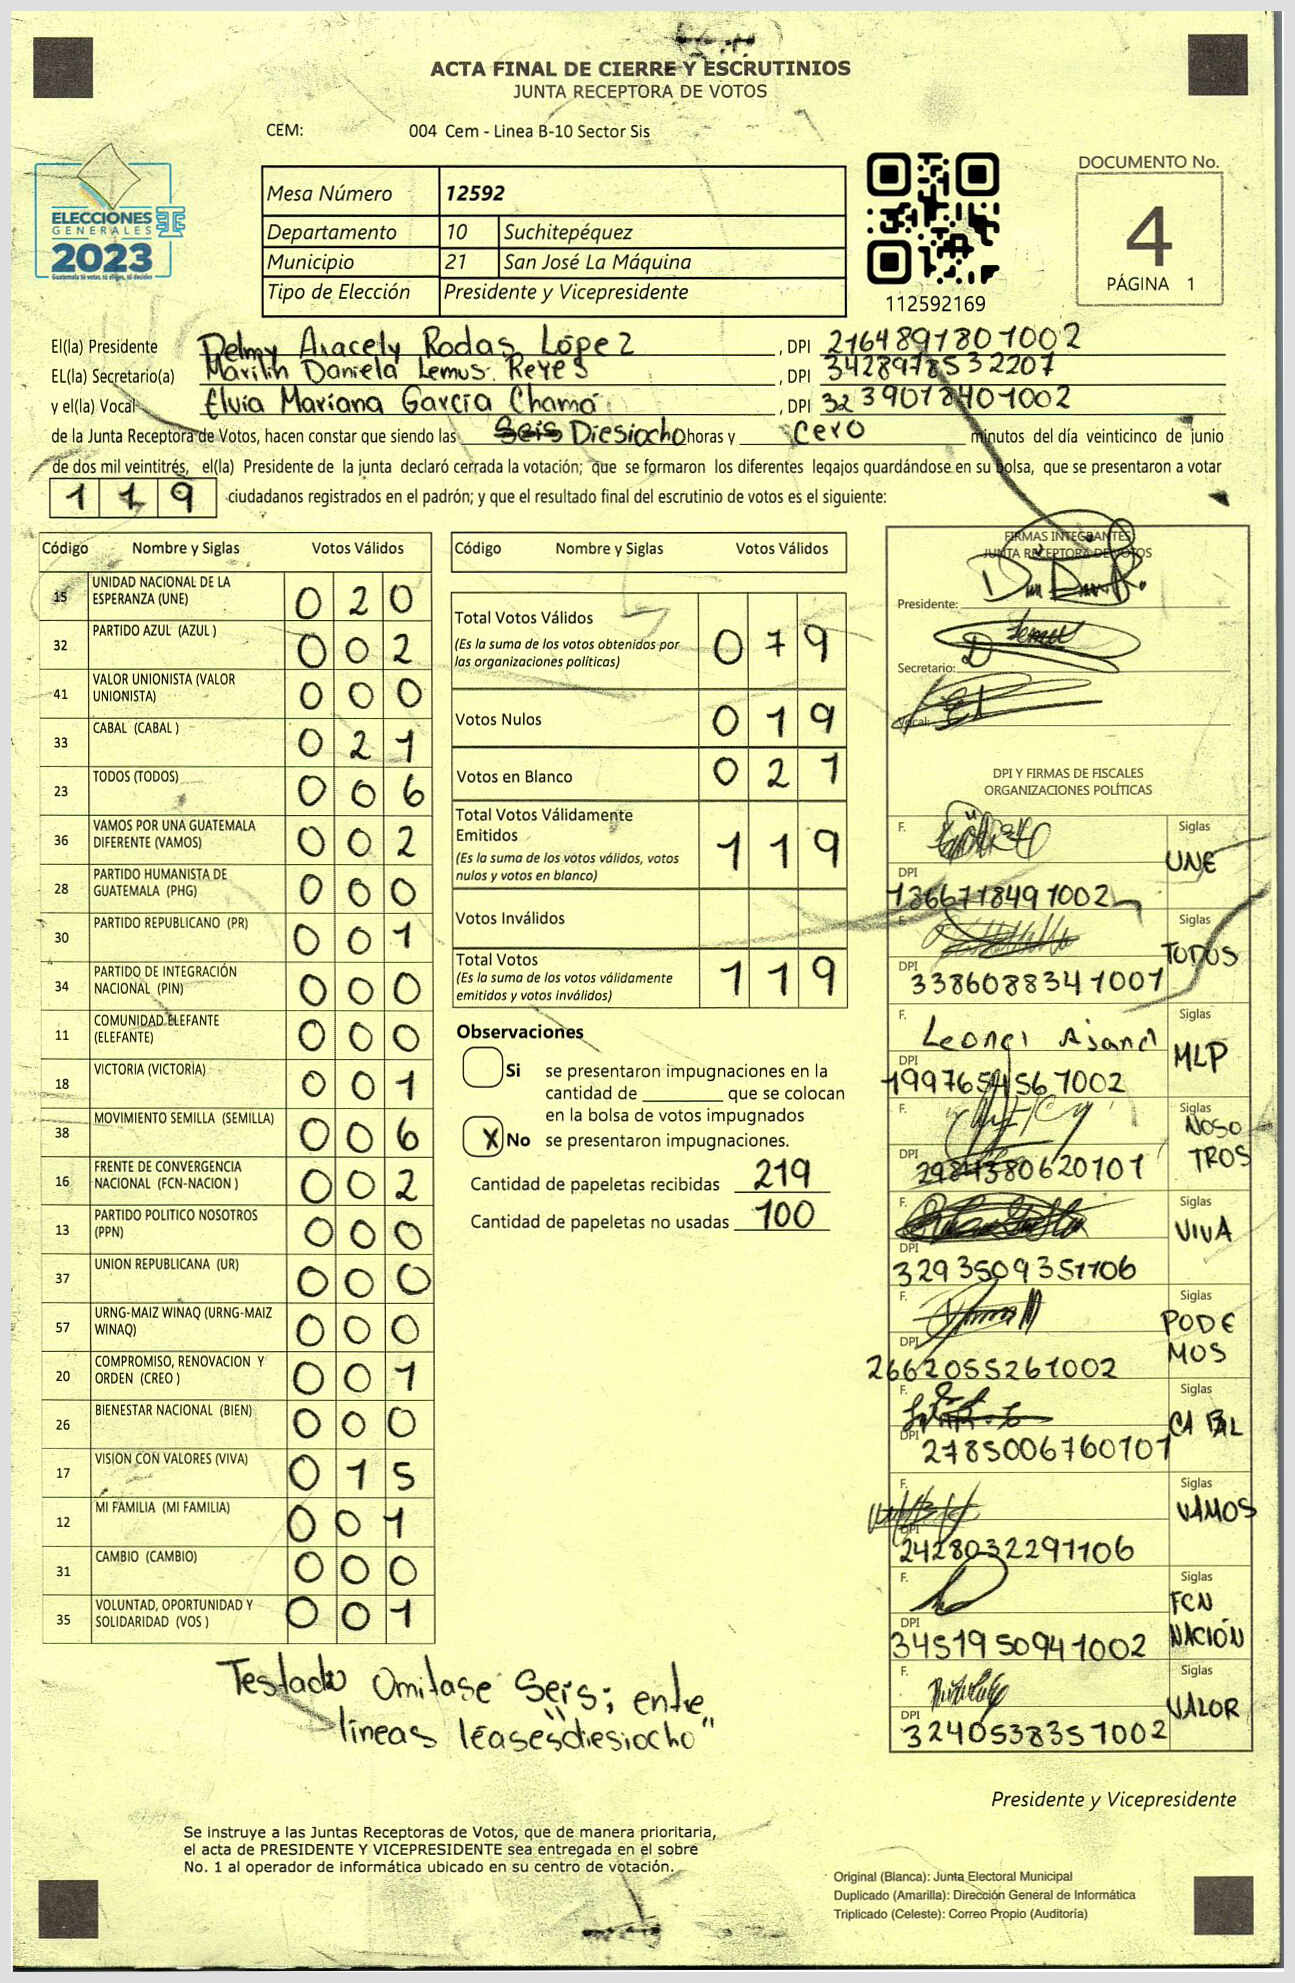 ACTA FINAL DE CIERRE Y ESCRUTINIOS
JUNTA RECEPTORA DE VOTOS
CEM: 004 Cem - Linea B-10 Sector Sis
ELECCIONES
GENERALES
2023
Guatemala tú votas, tú eliges, tú decides
Mesa Número 12592
Departamento 10 Suchitepéquez
Municipio 21 San José La Máquina
Tipo de Elección Presidente y Vicepresidente
112592169
DOCUMENTO No.
4
PÁGINA 1
El(la) Presidente Delmy Aracely Rodas López, DPI 2164891801002
EL(la) Secretario(a) Marilin Daniela Lemus Reyes, DPI 3428978532207
y el(la) Vocal Elvia Mariana García Chamá, DPI 3239018401002
de la Junta Receptora de Votos, hacen constar que siendo las Seis Diesiocho horas y cero minutos del día veinticinco de junio
de dos mil veintitrés, el(la) Presidente de la junta declaró cerrada la votación; que se formaron los diferentes legajos guardándose en su bolsa, que se presentaron a votar
119 ciudadanos registrados en el padrón; y que el resultado final del escrutinio de votos es el siguiente:
Código Nombre y Siglas Votos Válidos
15 UNIDAD NACIONAL DE LA ESPERANZA (UNE) 020
32 PARTIDO AZUL (AZUL ) 002
41 VALOR UNIONISTA (VALOR UNIONISTA) 000
33 CABAL (CABAL ) 021
23 TODOS (TODOS) 006
36 VAMOS POR UNA GUATEMALA DIFERENTE (VAMOS) 002
28 PARTIDO HUMANISTA DE GUATEMALA (PHG) 000
30 PARTIDO REPUBLICANO (PR) 001
34 PARTIDO DE INTEGRACIÓN NACIONAL (PIN) 000
11 COMUNIDAD ELEFANTE (ELEFANTE) 000
18 VICTORIA (VICTORIA) 001
38 MOVIMIENTO SEMILLA (SEMILLA) 006
16 FRENTE DE CONVERGENCIA NACIONAL (FCN-NACION ) 002
13 PARTIDO POLITICO NOSOTROS (PPN) 000
37 UNION REPUBLICANA (UR) 000
57 URNG-MAIZ WINAQ (URNG-MAIZ WINAQ) 000
20 COMPROMISO, RENOVACION Y ORDEN (CREO ) 001
26 BIENESTAR NACIONAL (BIEN) 000
17 VISION CON VALORES (VIVA) 015
12 MI FAMILIA (MI FAMILIA) 001
31 CAMBIO (CAMBIO) 000
35 VOLUNTAD, OPORTUNIDAD Y SOLIDARIDAD (VOS ) 001
Código Nombre y Siglas Votos Válidos
Total Votos Válidos 079
(Es la suma de los votos obtenidos por
las organizaciones políticas)
Votos Nulos 019
Votos en Blanco 021
Total Votos Válidamente
Emitidos 119
(Es la suma de los votos válidos, votos
nulos y votos en blanco)
Votos Inválidos
Total Votos 119
(Es la suma de los votos válidamente
emitidos y votos inválidos)
Observaciones
Si se presentaron impugnaciones en la
cantidad de ________ que se colocan
en la bolsa de votos impugnados
X No se presentaron impugnaciones.
Cantidad de papeletas recibidas 219
Cantidad de papeletas no usadas 100
FIRMAS INTEGRANTES
JUNTA RECEPTORA DE VOTOS
Presidente:
Secretario:
Vocal:
DPI Y FIRMAS DE FISCALES
ORGANIZACIONES POLÍTICAS
F. Siglas UNE
DPI 1366718491002
F. Siglas TODOS
DPI 3386088341001
F. Siglas MLP
DPI 1997654561002
F. Siglas NOSOTROS
DPI 2984380620101
F. VIVA Siglas
DPI 3293509351106
F. Siglas PODEMOS
DPI 2662055261002
F. Siglas CABAL
DPI 2785006760101
F. Siglas VAMOS
DPI 2428032291106
F. Siglas FCN NACIÓN
DPI 3451950941002
F. Siglas VALOR
DPI 3240538351002
Testado Omitase Seis; entre
líneas léases "diesiocho"
Presidente y Vicepresidente
Se instruye a las Juntas Receptoras de Votos, que de manera prioritaria,
el acta de PRESIDENTE Y VICEPRESIDENTE sea entregada en el sobre
No. 1 al operador de informática ubicado en su centro de votación.
Original (Blanca): Junta Electoral Municipal
Duplicado (Amarilla): Dirección General de Informática
Triplicado (Celeste): Correo Propio (Auditoría)